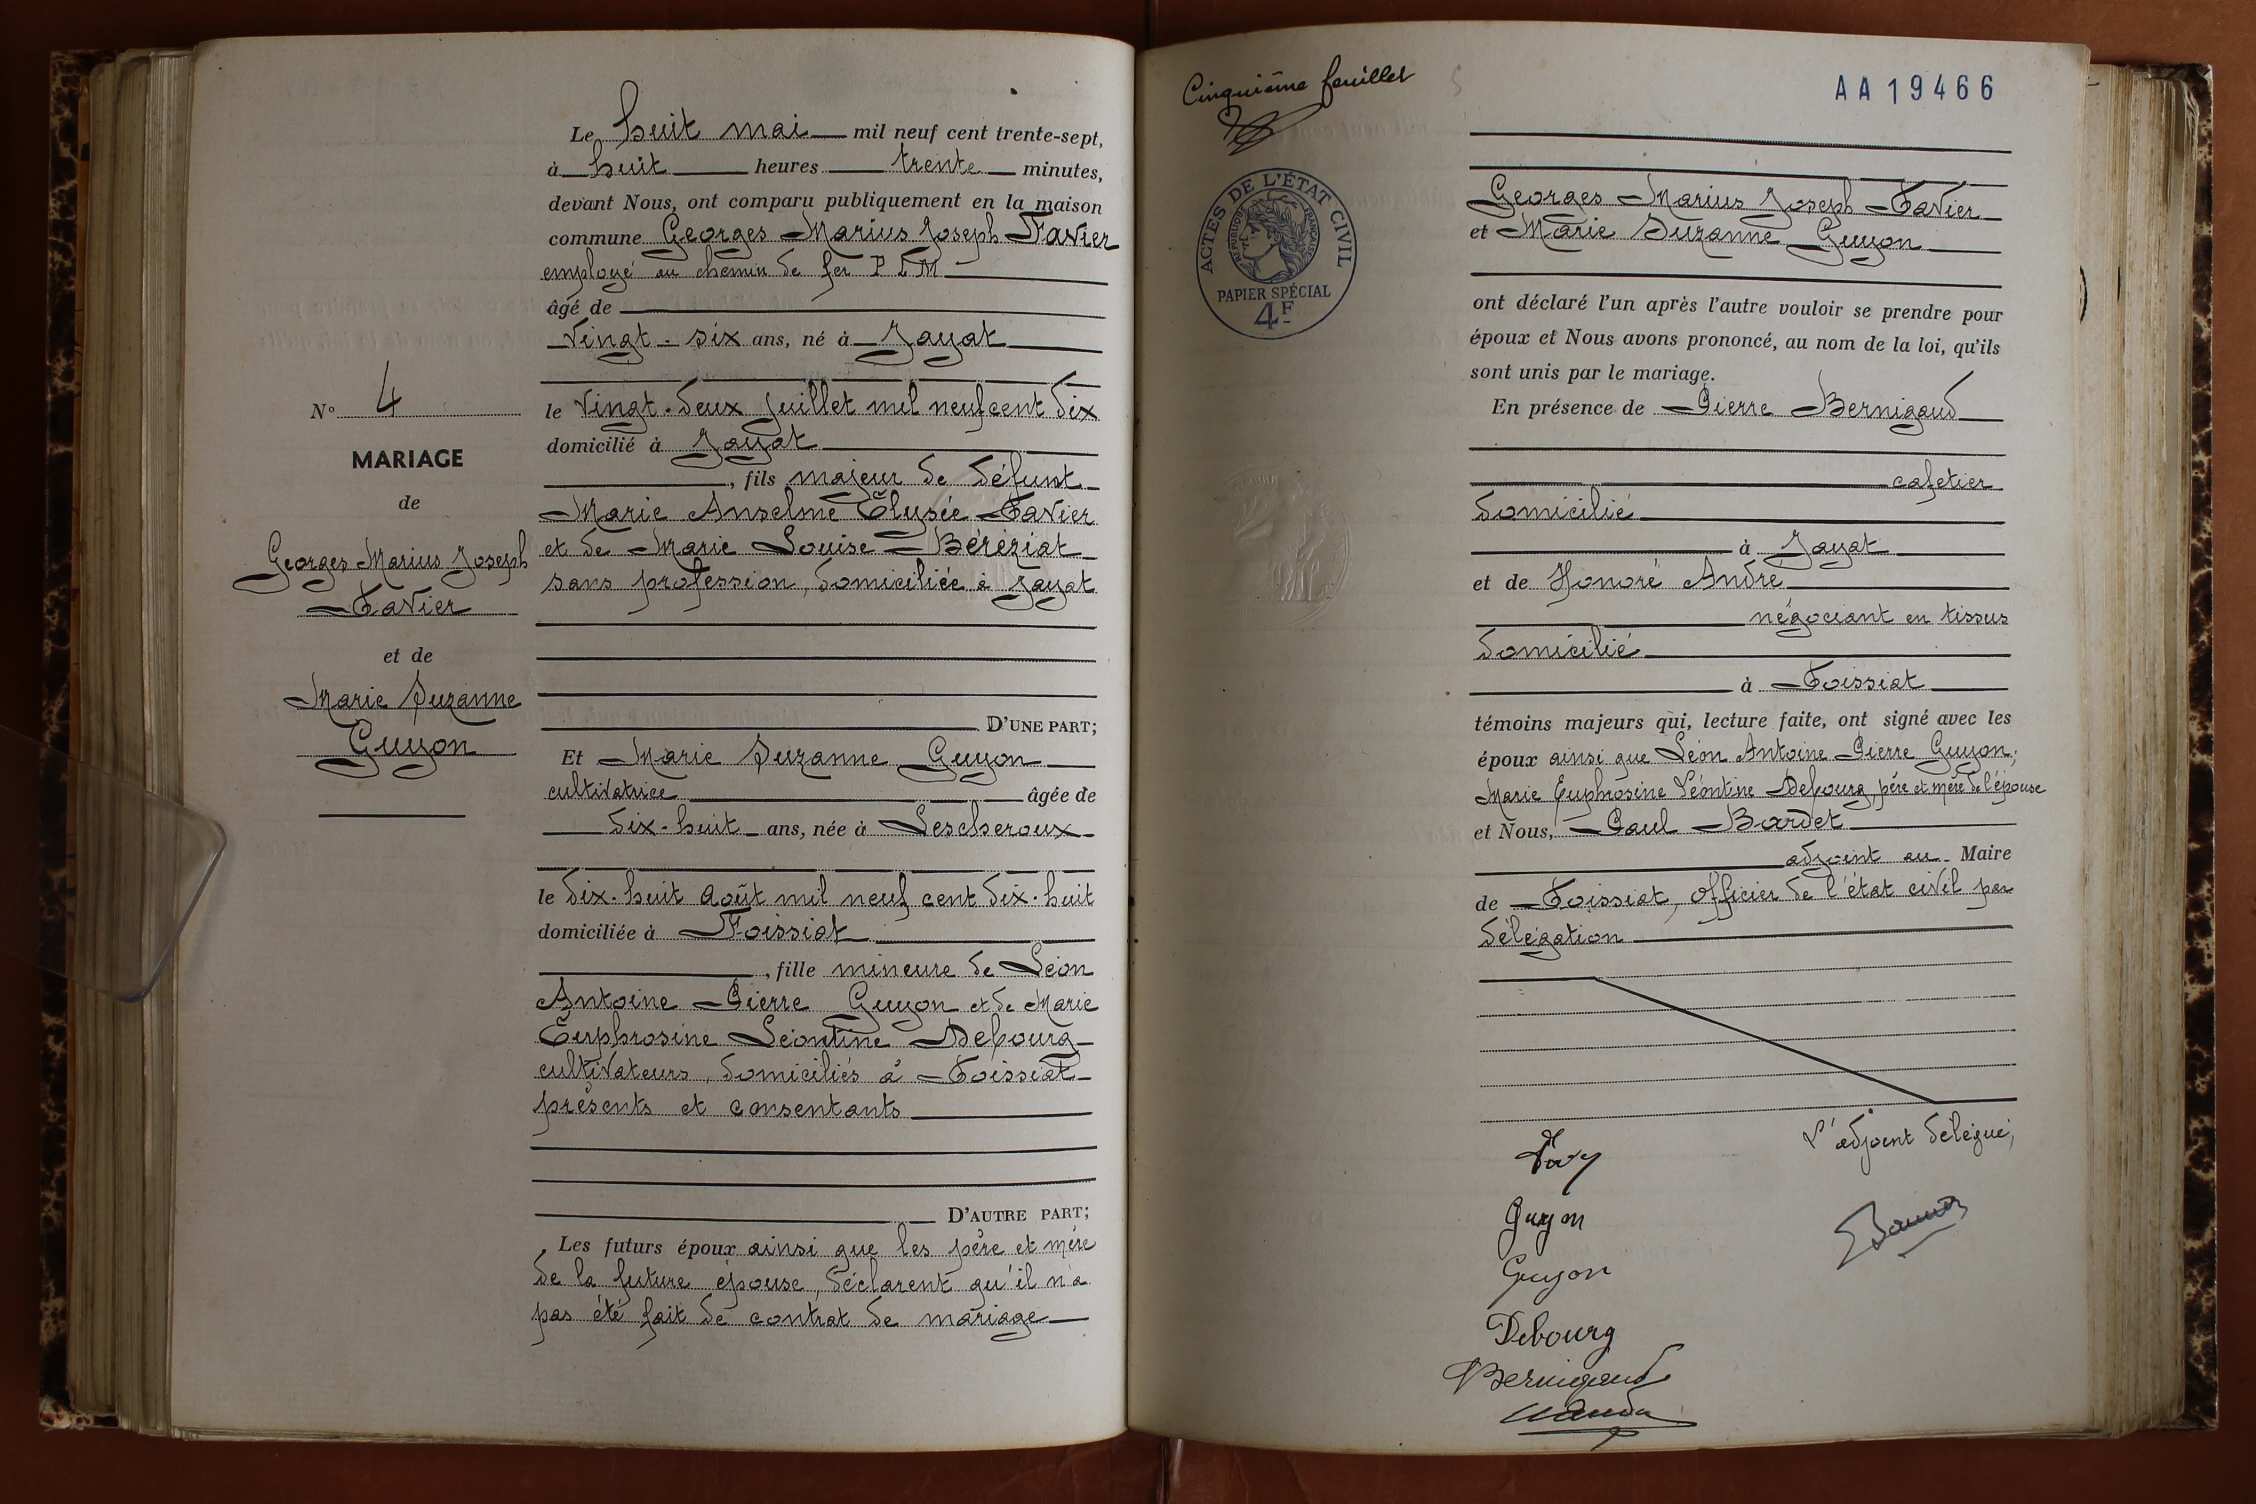 Le huit mai mil neuf cent trente-sept,
à huit heures trente minutes,
devant Nous, ont comparu publiquement en la maison
commune Georges Marius Joseph Favier
employé au chemin de fer P L M
âgé de
vingt-six ans, né à Jayat
le vingt-deux juillet mil neuf cent dix
domicilié à Jayat
, fils majeur de défunt
Marie Anselme Elysée Favier
et de Marie Louise Béréziat
sans profession, domiciliée à Jayat
D'UNE PART;
Et Marie Suzanne Guyon
cultivatrice âgée de
dix-huit ans, née à Lescheroux
le dix-huit août mil neuf cent dix-huit
domiciliée à Foissiat
, fille mineure de Léon
Antoine Pierre Guyon et de Marie
Euphrosine Léontine Debourg
cultivateurs, domiciliés à Foissiat
présents et consentants
D'AUTRE PART;
Les futurs époux ainsi que les père et mère
de la future épouse, déclarent qu'il n'a
pas été fait de contrat de mariage
N° 4
MARIAGE
de
Georges Marius Joseph
Favier
et de
Marie Suzanne
Guyon
Cinquième feuillet
AA19466
ACTES DE L'ÉTAT CIVIL
RÉPUBLIQUE FRANÇAISE
PAPIER SPÉCIAL
4F
Georges Marius Joseph Favier
et Marie Suzanne Guyon
ont déclaré l'un après l'autre vouloir se prendre pour
époux et Nous avons prononcé, au nom de la loi, qu'ils
sont unis par le mariage.
En présence de Pierre Bernigaud
cafetier
domicilié
à Jayat
et de Honoré André
négociant en tissus
domicilié
à Foissiat
témoins majeurs qui, lecture faite, ont signé avec les
époux ainsi que Léon Antoine Pierre Guyon,
Marie Euphrosine Léontine Debourg, père et mère de l'épouse
et Nous, Paul Bardet
adjoint au Maire
de Foissiat, officier de l'état civil par
délégation
L'adjoint délégué,
Guyon
Guyon
Debourg
Bernigaud